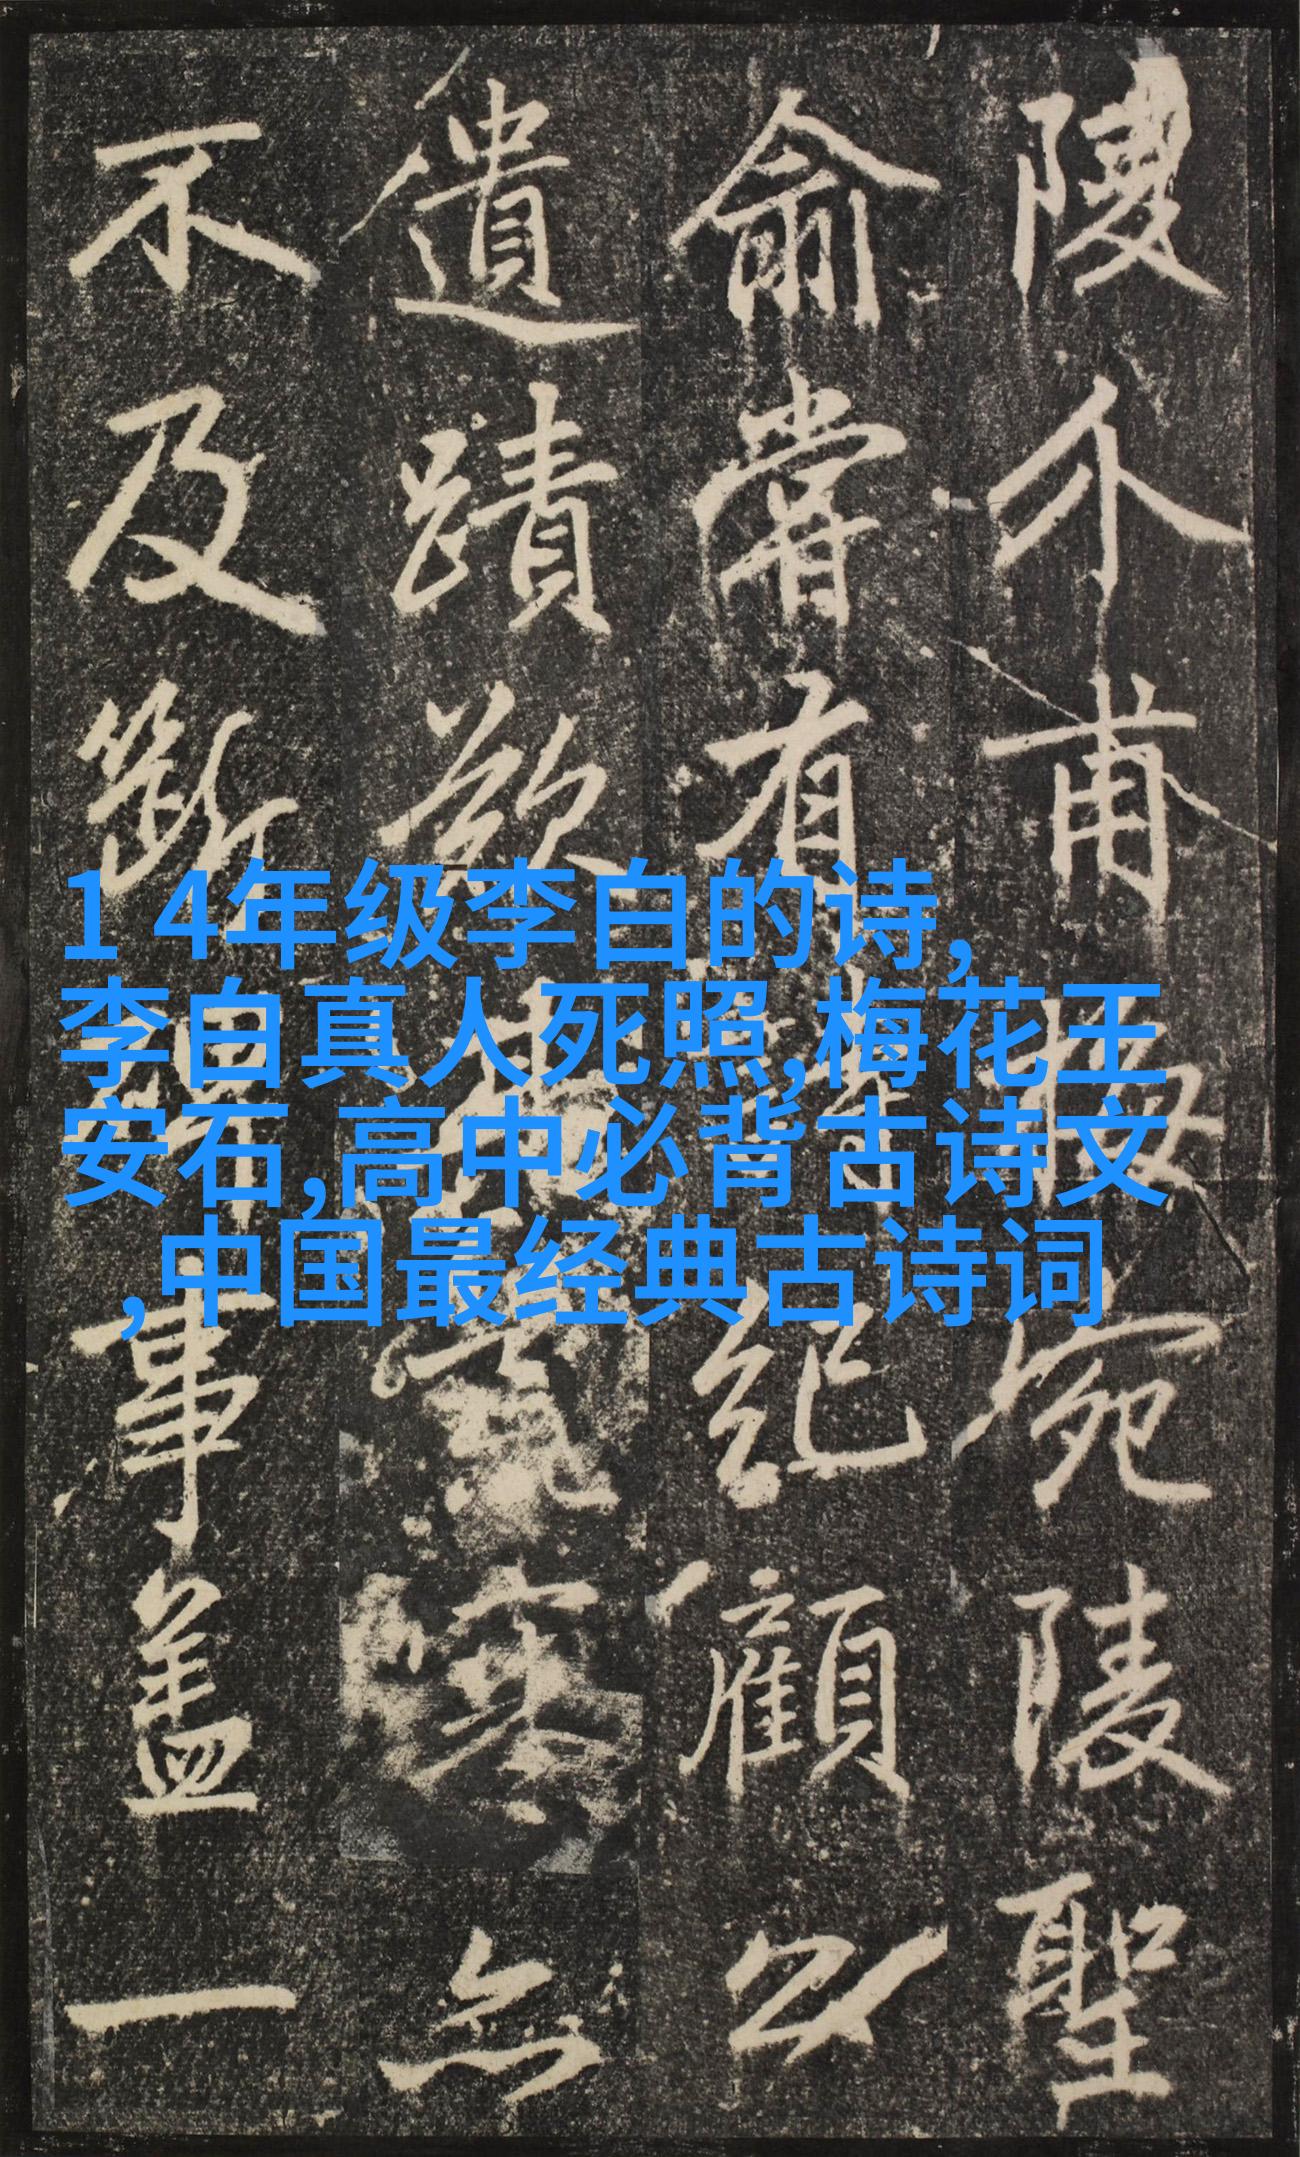 1 4年级李白的诗,
李白真人死照,梅花王
安石,高中必背古诗文
,中国最经典古诗词
陵介甫梅宛陵聖
俞嘗有詩紀顧
遺蹟欲寒無
不及斷碑事蓋一